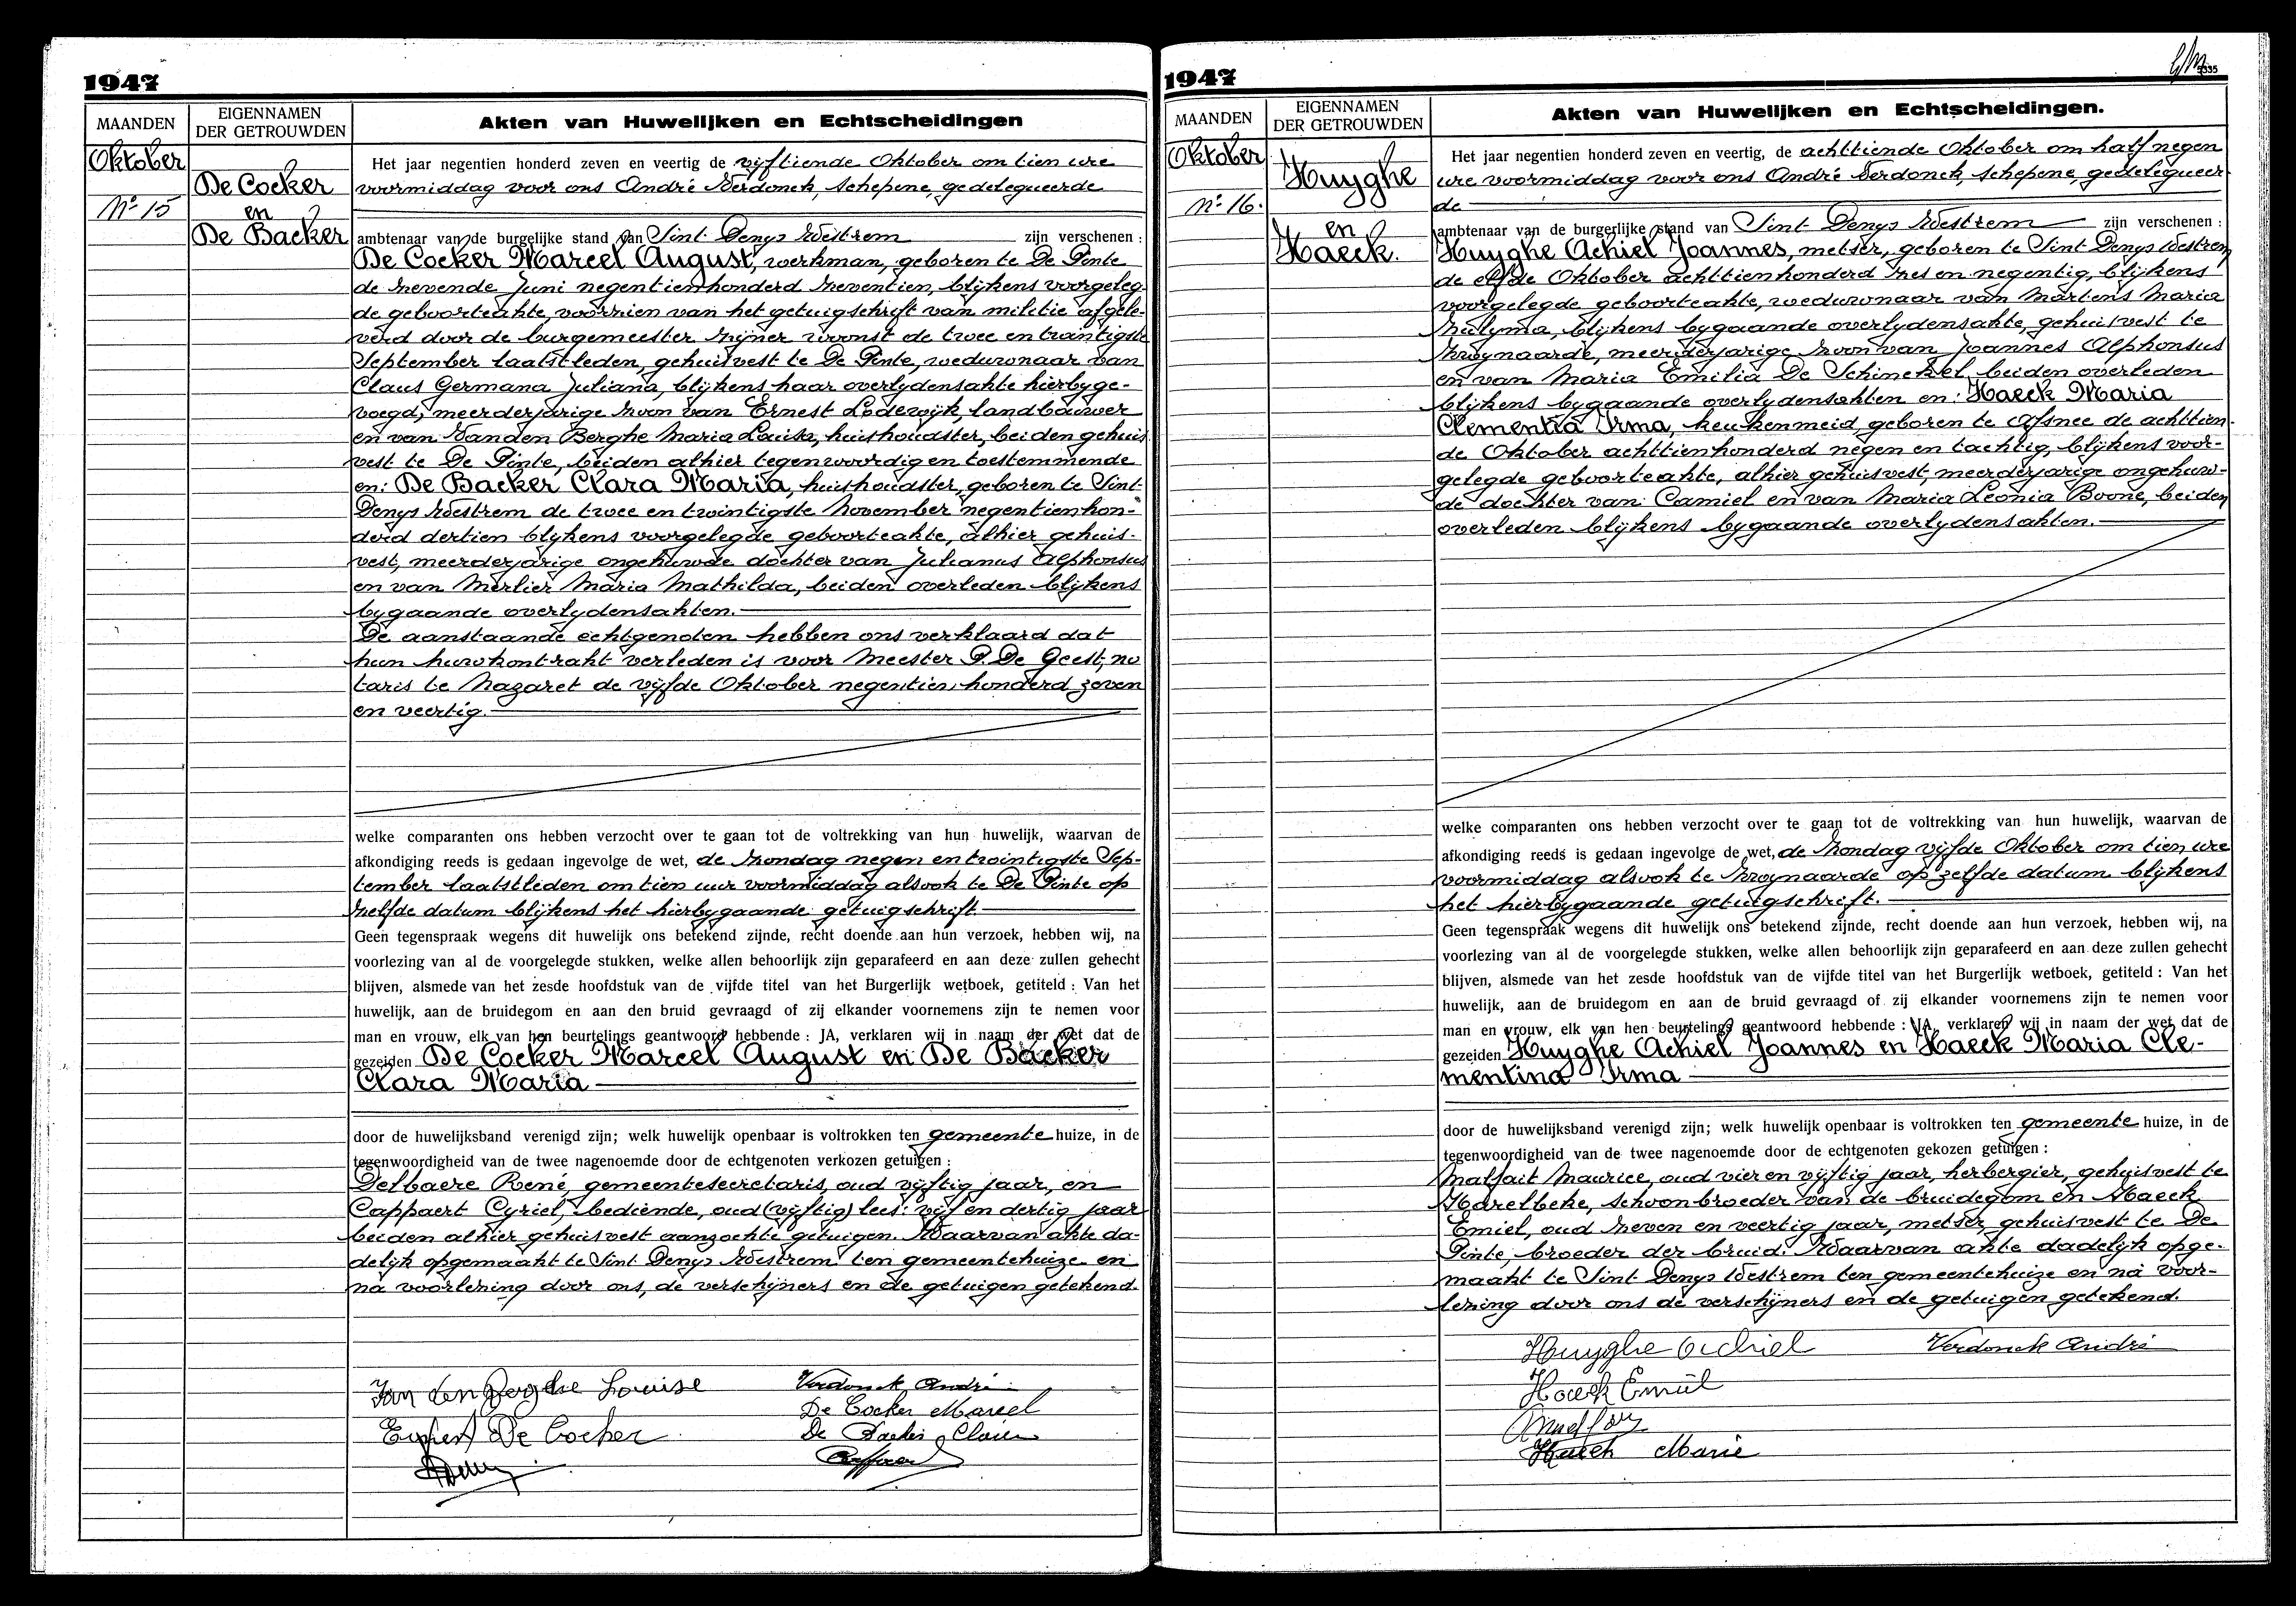 1947
MAANDEN
EIGENNAMEN
DER GETROUWDEN
Akten van Huwelijken en Echtscheidingen
Oktober
Nº 15
De Cocker
en
De Backer
Het jaar negentien honderd zeven en veertig de vijftiende Oktober om tien ure
voormiddag voor ons André Verdonck, schepene, gedelegueerde
ambtenaar van de burgelijke stand van Sint Denys Westrem zijn verschenen :
De Cocker Marcel August, werkman, geboren te De Pinte
de zevende Juni negentienhonderd zeventien, blijkens voorgeleg-
de geboorteakte, voorzien van het getuigschrift van militie afgele-
verd door de burgemeester zijner woonst de twee en twintigste
September laatstleden, gehuisvest te De Pinte, weduwnaar van
Claus Germana Juliana, blijkens haar overlydensakte hierbyge-
voegd, meerderjarige zoon van Ernest Lodewijk, landbouwer
en van Vanden Berghe Maria Louisa, huishoudster, beiden gehuis
vest te De Pinte, beiden alhier tegenwoordig en toestemmende
en: De Backer Clara Maria, huishoudster, geboren te Sint
Denys Westrem de twee en twintigste November negentienhon-
derd dertien blykens voorgelegde geboorteakte, alhier gehuis-
vest, meerderjarige ongehuwde dochter van Julianus Alphonsus
en van Merlier Maria Mathilda, beiden overleden blykens
bygaande overlydensakten.
De aanstaande echtgenoten hebben ons verklaard dat
hun huwkontrakt verleden is voor Meester P. De Geest, no
taris te Nazaret de vijfde Oktober negentien honderd zeven
en veertig.
welke comparanten ons hebben verzocht over te gaan tot de voltrekking van hun huwelijk, waarvan de
afkondiging reeds is gedaan ingevolge de wet, de zondag negen en twintigste Sep-
tember laatstleden om tien uur voormiddag alsook te De Pinte op
zelfde datum blijkens het hierbygaande getuigschrift
Geen tegenspraak wegens dit huwelijk ons betekend zijnde, recht doende aan hun verzoek, hebben wij, na
voorlezing van al de voorgelegde stukken, welke allen behoorlijk zijn geparafeerd en aan deze zullen gehecht
blijven, alsmede van het zesde hoofdstuk van de vijfde titel van het Burgerlijk wetboek, getiteld : Van het
huwelijk, aan de bruidegom en aan den bruid gevraagd of zij elkander voornemens zijn te nemen voor
man en vrouw, elk van hen beurtelings geantwoord hebbende : JA, verklaren wij in naam der wet dat de
gezeiden De Cocker Marcel August en De Backer
Clara Maria
door de huwelijksband verenigd zijn; welk huwelijk openbaar is voltrokken ten gemeente huize, in de
tegenwoordigheid van de twee nagenoemde door de echtgenoten verkozen getuigen :
Delbaere René, gemeentesecretaris, oud vijftig jaar, en
Cappaert Cyriel, bediende, oud (vijftig) lees: vijf en dertig jaar
beiden alhier gehuisvest aanzochte getuigen. Waarvan akte da-
delijk opgemaakt te Sint Denys Westrem ten gemeentehuize en
na voorlezing door ons, de verschijners en de getuigen getekend.
Van den Berghe Louise
Verdonck André
De Cocker Marcel
De Cocker
De Backer Clara
1947
MAANDEN
EIGENNAMEN
DER GETROUWDEN
Akten van Huwelijken en Echtscheidingen.
Oktober
Nº 16.
Huyghe
en
Haeck.
Het jaar negentien honderd zeven en veertig, de achttiende Oktober om half negen
ure voormiddag voor ons André Verdonck, schepene, gedelegueer-
de
ambtenaar van de burgerlijke stand van Sint Denys Westrem zijn verschenen :
Huyghe Achiel Joannes, metser, geboren te Sint Denys Westrem
de elfde Oktober achttienhonderd zes en negentig, blijkens
voorgelegde geboorteakte, weduwnaar van Martens Maria
Zulyma, blijkens bygaande overlydensakte, gehuisvest te
Zwynaarde, meerderjarige zoon van Joannes Alphonsus
en van Maria Emilia De Schinckel, beiden overleden
blijkens bygaande overlydensakten en: Haeck Maria
Clementia Irma, keukenmeid, geboren te Afsnee de achttien-
de Oktober achttienhonderd negen en tachtig, blijkens voor-
gelegde geboorteakte, alhier gehuisvest, meerderjarige ongehuw-
de dochter van: Camiel en van Maria Leonia Boone, beiden
overleden blijkens bygaande overlydensakten.
welke comparanten ons hebben verzocht over te gaan tot de voltrekking van hun huwelijk, waarvan de
afkondiging reeds is gedaan ingevolge de wet, de zondag vijfde Oktober om tien ure
voormiddag alsook te Zwynaarde op zelfde datum blijkens
het hierbygaande getuigschrift.
Geen tegenspraak wegens dit huwelijk ons betekend zijnde, recht doende aan hun verzoek, hebben wij, na
voorlezing van al de voorgelegde stukken, welke allen behoorlijk zijn geparafeerd en aan deze zullen gehecht
blijven, alsmede van het zesde hoofdstuk van de vijfde titel van het Burgerlijk wetboek, getiteld : Van het
huwelijk, aan de bruidegom en aan de bruid gevraagd of zij elkander voornemens zijn te nemen voor
man en vrouw, elk van hen beurtelings geantwoord hebbende : JA, verklaren wij in naam der wet dat de
gezeiden Huyghe Achiel Joannes en Haeck Maria Cle-
mentina Irma
door de huwelijksband verenigd zijn; welk huwelijk openbaar is voltrokken ten gemeente huize, in de
tegenwoordigheid van de twee nagenoemde door de echtgenoten gekozen getuigen :
Malfait Maurice, oud vier en vijftig jaar, herbergier, gehuisvest te
Harelbeke, schoonbroeder van de bruidegom en Haeck
Emiel, oud zeven en veertig jaar, metser, gehuisvest te De
Pinte, broeder der bruid. Waarvan akte dadelijk opge-
maakt te Sint Denys Westrem ten gemeentehuize en na voor-
lezing door ons de verschijners en de getuigen getekend.
Huyghe Achiel
Verdonck André
Haeck Emiel
Haeck Marie